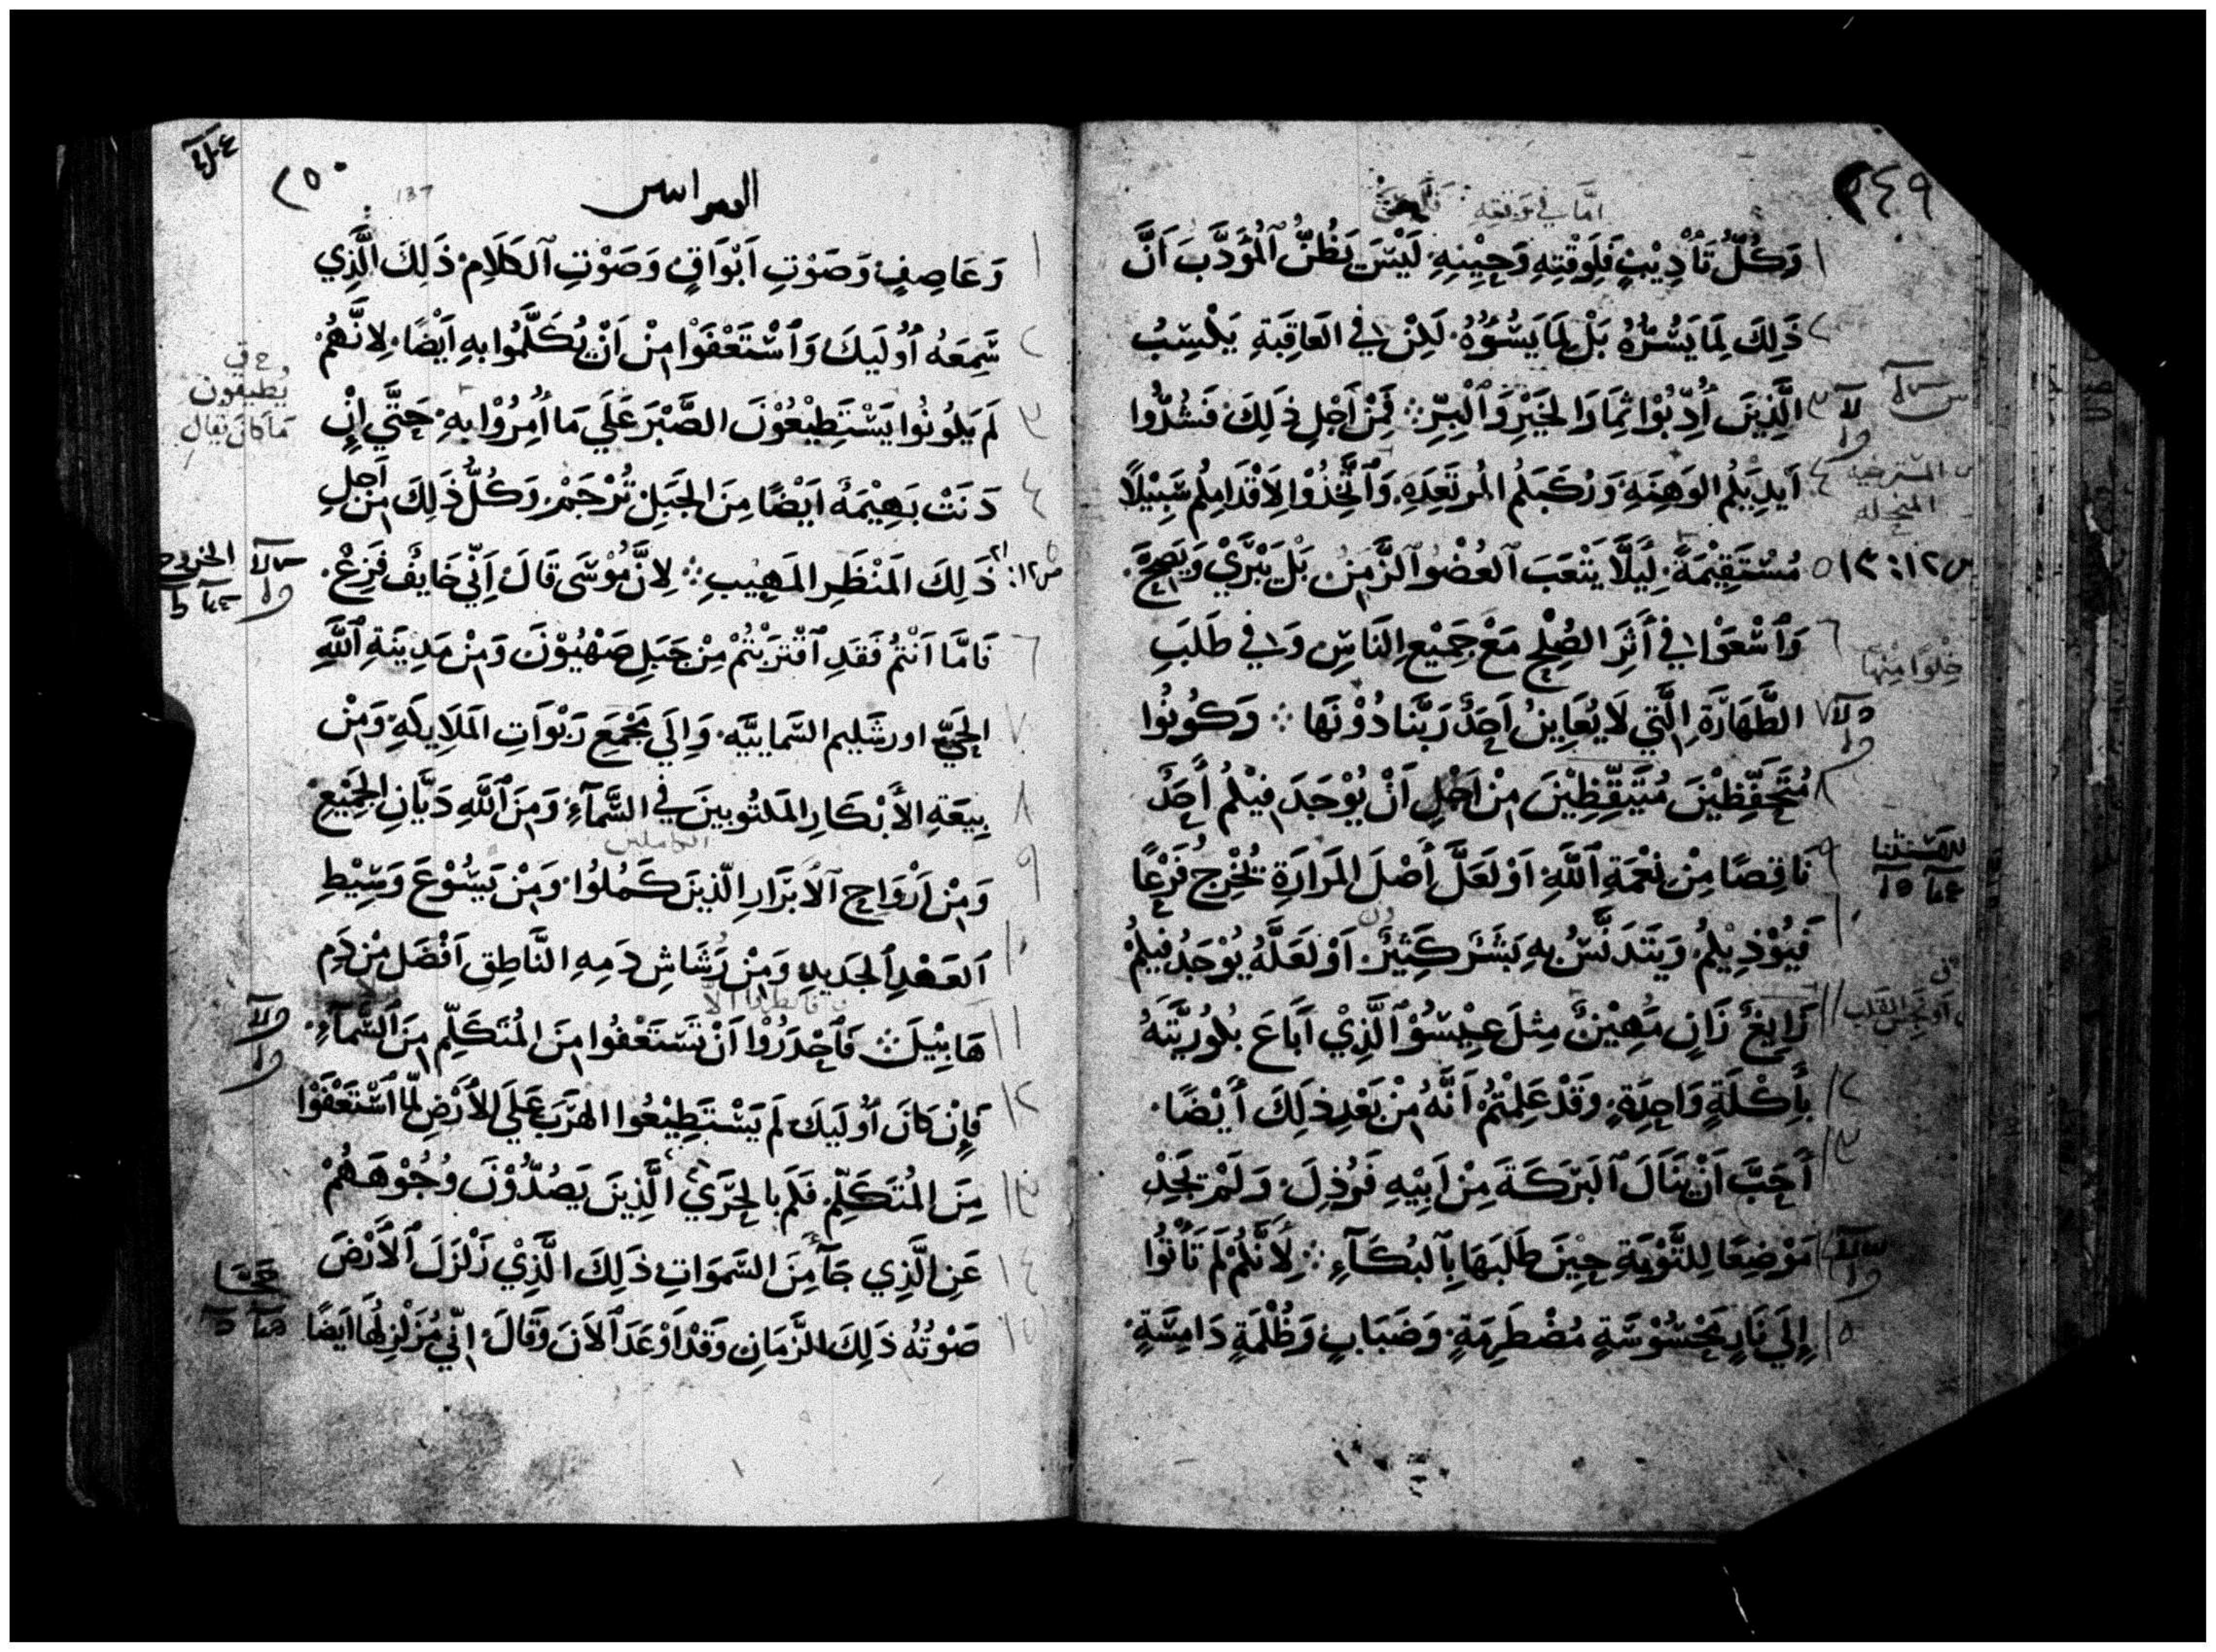 ٢٤٩
اما في وقته
١ وَكُلُّ تَأْدِيْبٍ فَلِوَقْتِهِ وَحِيْنِهِ. لَيْسَ يَظُنُّ ٱلْمُؤَدَّبَ اَنَّ
٢ ذَلِكَ لِمَا يَسُرُّهُ بَلْ لِمَا يَسُؤُهُ. لَكِنْ فِي العَاقِبَةِ يَكْسِبُ
٣ الَّذِينَ أُدِّبُوْا ثِمَارَ الخَيْرِ وَٱلْبِرِّ ۞ فَمِنْ اَجْلِ ذَلِكَ فَشُدُّوا
٤ اَيدِيَكُم الوَهِنَةِ وَرُكَبَكُم المُرتَعِدَةِ. وَٱتَّخِذُوْا لِاَقْدَامِكُم سَبِيْلًا
المسترخيه
المنحله
ص ١٢: ١٣ ٥ مُسْتَقِيْمَةً. لِيَلَّا يَتْعَبَ ٱلعُضْوُ ٱلزَّمِنُ بَلْ يَبْرَيْ وَيَصِحَّ.
٦ وَٱسْعَوْا فِي أَثَرِ الصُلْحِ مَعْ جَمِيْعِ النَاسِ وَفِي طَلَبِ
خلوا منها
٧ الطَّهَارَةِ الَّتِي لَا يُعَايِنُ اَحَدٌ رَبَّنَا دُوْنَهَا ۞ وَكُونُوا
٨ مُتَحَفِّظِيْنَ مُتَيَقِّظِيْنَ مِنْ اَجْلِ اَنْ يُوْجَدَ فِيْكُم أَحَدٌ
٩ نَاقِصًا مِنْ نِعْمَةِ ٱللَّهِ. اَوْ لَعَلَّ أَصْلَ المَرَارَةِ تُخْرِجُ فَرْعًا
١٠ فَيُوْذِيْكُم. وَيَتَدَنَّسُ بِهِ بَشَرٌ كَثِيْرٌ. اَوْ لَعَلَّهُ يُوْجَدُ فِيكُمْ
١١ زَايغٌ زَانٍ مَهِيْنٌ مِثلَ عِيْسُوْ ٱلَّذِيْ اَبَاعَ بُكُورِيَّتَهُ
او نجس القلب
١٢ بِأَكْلَةٍ وَاحِدَةٍ. وَقَدْ عَلِمْتُمْ اَنَّهُ مِنْ بَعْدِ ذَلِكَ أَيْضًا.
١٣ أَحَبَّ اَنْ يَنَالَ ٱلبَرَكَةَ مِنْ اَبِيْهِ فَرُذِلَ. وَلَمْ يَجِدْ
١٤ مَوْضِعًا لِلتَّوْبَةِ حِيْنَ طَلَبَهَا بِٱلبُكَآءِ ۞ لِاَنَّكُمْ لَم تَأْتُوا
١٥ إِلَي نَارٍ مَحْسُوْسَةٍ مُضْطَرِمَةٍ. وَضَبَابٍ وَظُلْمَةٍ دَامِسَةٍ.
٢٥٠
137
العبرانيين
١ وَعَاصِفٍ وَصَوْتِ اَبْوَاقٍ وَصَوْتِ ٱلكَلَامِ. ذَلِكَ الَّذِي
٢ سَمِعَهُ اُوْلَيكَ وَٱسْتَعْفَوْا مِنْ اَنْ يُكَلَّمُوا بِهِ اَيْضًا. لِانَّهُمْ
٣ لَم يَكُونُوا يَسْتَطِيْعُوْنَ الصَّبْرَ عَلَي مَا اُمِرُوْا بِهِ. حَتَّي اِنْ
يطيقون
ما كان يقال
٤ دَنَتْ بَهِيْمَةٌ اَيْضًا مِنَ الجَبَلِ تُرْجَمْ. وَكُلُّ ذَلِكَ مِن اَجلِ
ص ١٢: ٢١ ذَلِكَ المَنْظَرِ المَهِيْبِ ۞ لِانَّ مُوْسَى قَالَ اِنِّي خَايفٌ فَزِعْ.
٦ فَامَّا اَنْتُم فَقَدِ ٱقْتَرَبْتُمْ مِنْ جَبَلِ صَهْيُوْنَ وَمِنْ مَدِيْنَةِ ٱللَّهِ
٧ الحَيِّ اورشَلِيم السَّمَاييَّه. وَاِلَي مَجْمَعِ رَبْوَاتِ المَلَايكَةِ وَمِنْ
٨ بِيعَةِ الأَبْكَارِ المَكتُوبِينَ فِي السَّمَآءِ. وَمِنَ ٱللَّهِ دَيَّانِ الجَمِيْعِ.
٩ وَمِنْ اَرْوَاحِ ٱلاَبْرَارِ الَّذِينَ كَمُلُوا. وَمِنْ يَسُوْعَ وَسِيْطِ
١٠ ٱلعَهْدِ ٱلجَدِيدِ وَمِنْ رُشَاشِ دَمِهِ النَّاطِقِ اَفْضَلَ مِنْ دَمِ
١١ هَابِيْلَ ۞ فَٱحْذَرُوْا اَنْ تَسْتَعْفُوا مِنَ المُتَكَلِّمِ مِنَ السَّمآءِ.
١٢ فَاِنْ كَانَ اُوْلَيكَ لَم يَسْتَطِيْعُوا الهَرَبَ عَلَي الأَرْضِ لَمَّا ٱسْتَعْفَوْا
١٣ مِنَ المُتَكَلِّمِ. فَكَم بِالحَرَيِّ الَّذِينَ يَصُدُّوْنَ وُجُوْهَهُمْ
١٤ عَنِ الَّذِي جَآ مِنَ السَّمَوَاتِ ذَلِكَ الَّذِيْ زَلْزَلَ ٱلاَرْضَ
١٥ صَوْتُهُ ذَلِكَ الزَّمَانِ وَقَدْ اَوْعَدَ ٱلاَنَ وَقَالَ. اِنِّي مُزَلْزِلُهَا اَيضًا